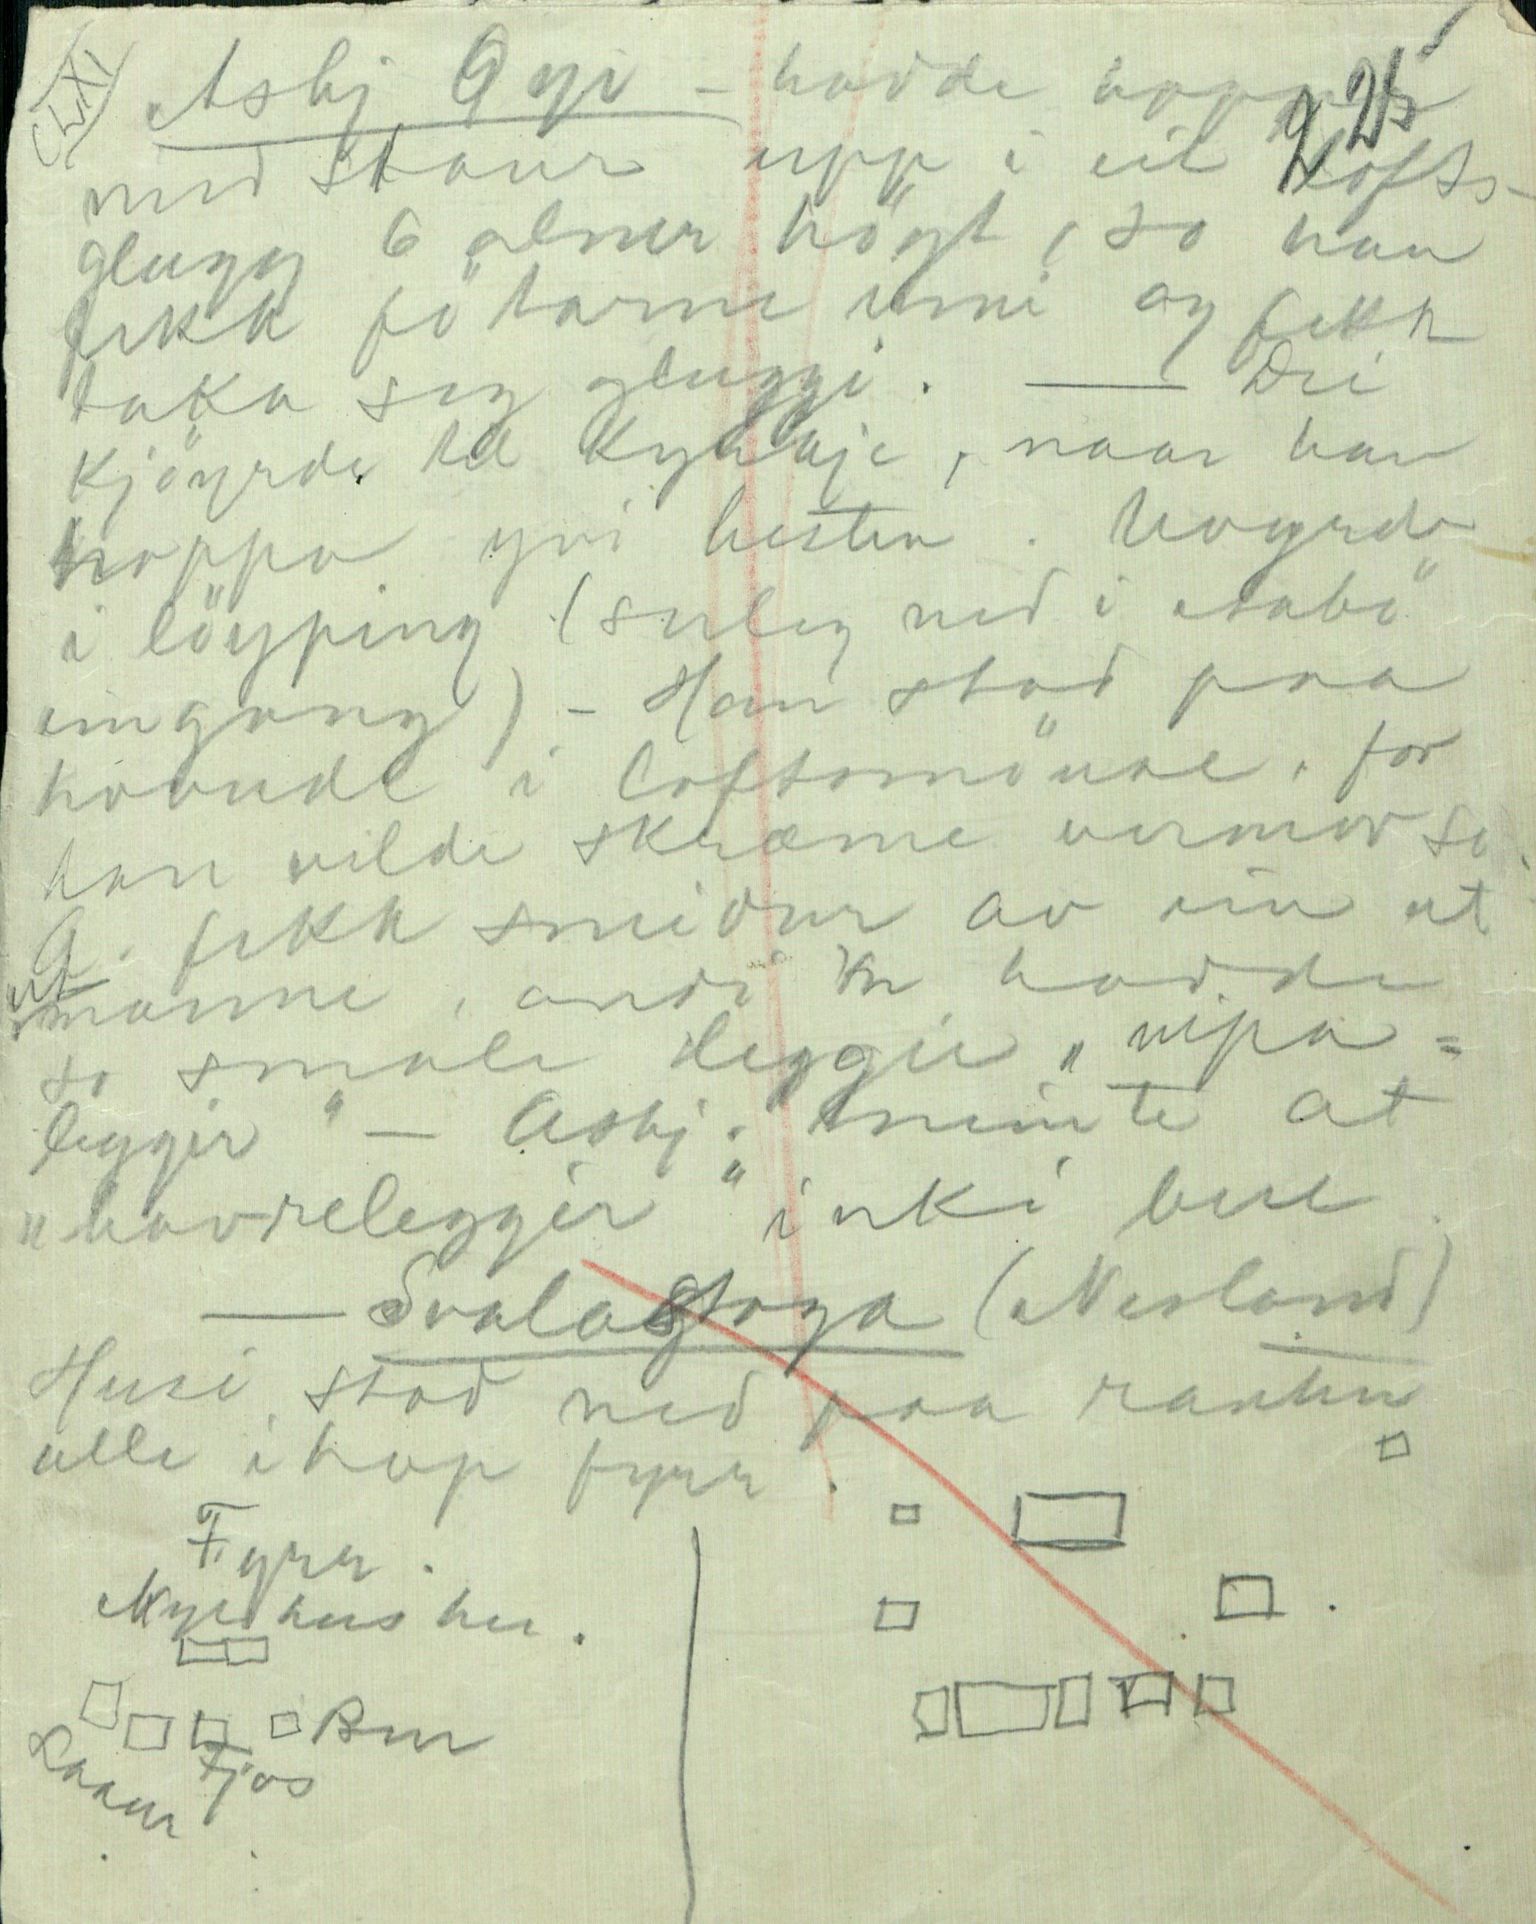 LXI
Asbj Øyi – hadde hoppa
925
med staur upp i eit Lofts-
glugg 6 alner högt, so han
fekk fötarne inni og fekk
taka seg gluggji. — Dei
kjöyrde til kyrkje, naar han
hoppa yvi hesten. höyrde
i löyping (snleg ned i
eingong) – Han stod paa
hovudl i loftsmönae, for
han vilde skræme
A. fekk smidur av ein ut
manne, andi hadde
so smale leggir „vipa=
leggir“ – Asbj. meinte at
„havreleggir“ inkj bere.
— Svalastoga (Nesland)
Husi stod ned paa
alle ihop fyrr.
Fyrr.
Nyehus her.
Bur
Fjos